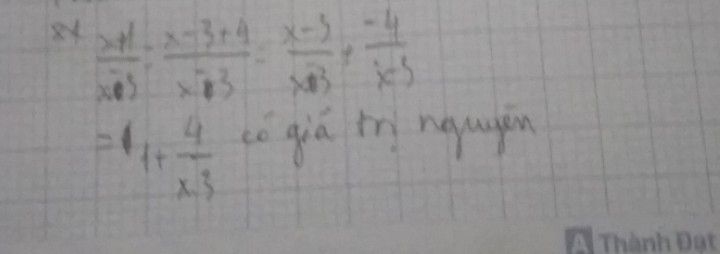 x+1/x-3 = x-3+4/x-3 = x-3/x-3 + -4/x-3
= 1+ 4/x-3 có giá trị nguyên
Thành Đạt